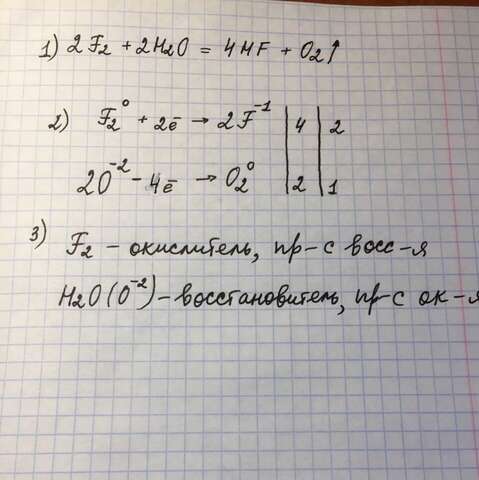 1) 2F₂ + 2H₂O = 4HF + O₂↑
2) F₂⁰ + 2ē → 2F⁻¹ | 4 | 2
2O⁻² - 4ē → O₂⁰ | 2 | 1
3) F₂ - окислитель, пр-с восс-я
H₂O (O⁻²) - восстановитель, пр-с ок-я